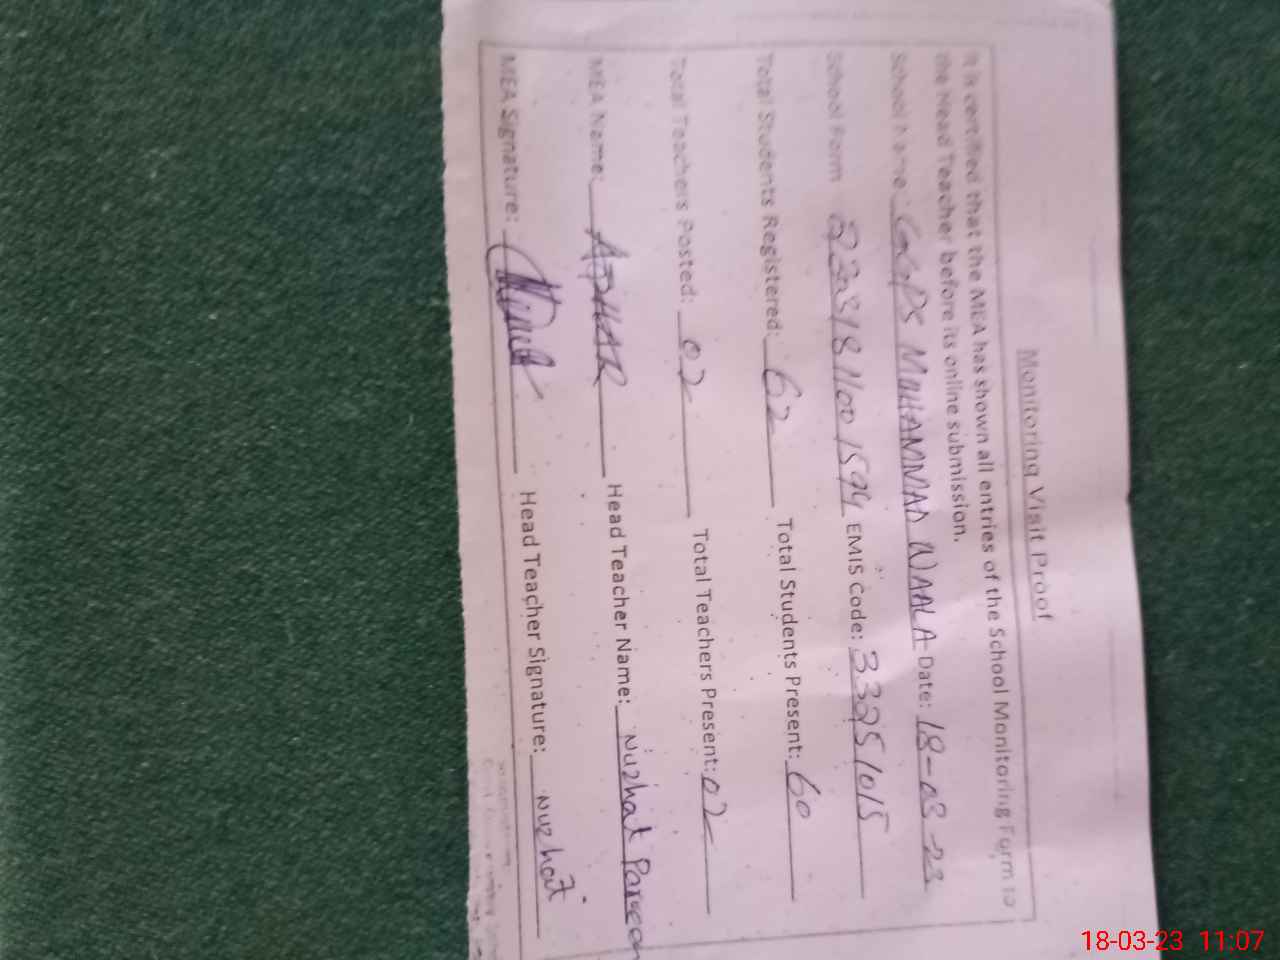 Monitoring Visit Proof
It is certified that the MEA has shown all entries of the School Monitoring Form to
the Head Teacher before its online submission.
School Name: GGPS MUHAMMAD WAALA Date: 18-03-23
School Form 2303181100 1594 EMIS Code: 33251015
Total Students Registered: 62 Total Students Present: 60
Total Teachers Posted: 02 Total Teachers Present: 02
MEA Name: AZHAR Head Teacher Name: Nuzhat Parveen
MEA Signature: Head Teacher Signature: Nuzhat
18-03-23 11:07